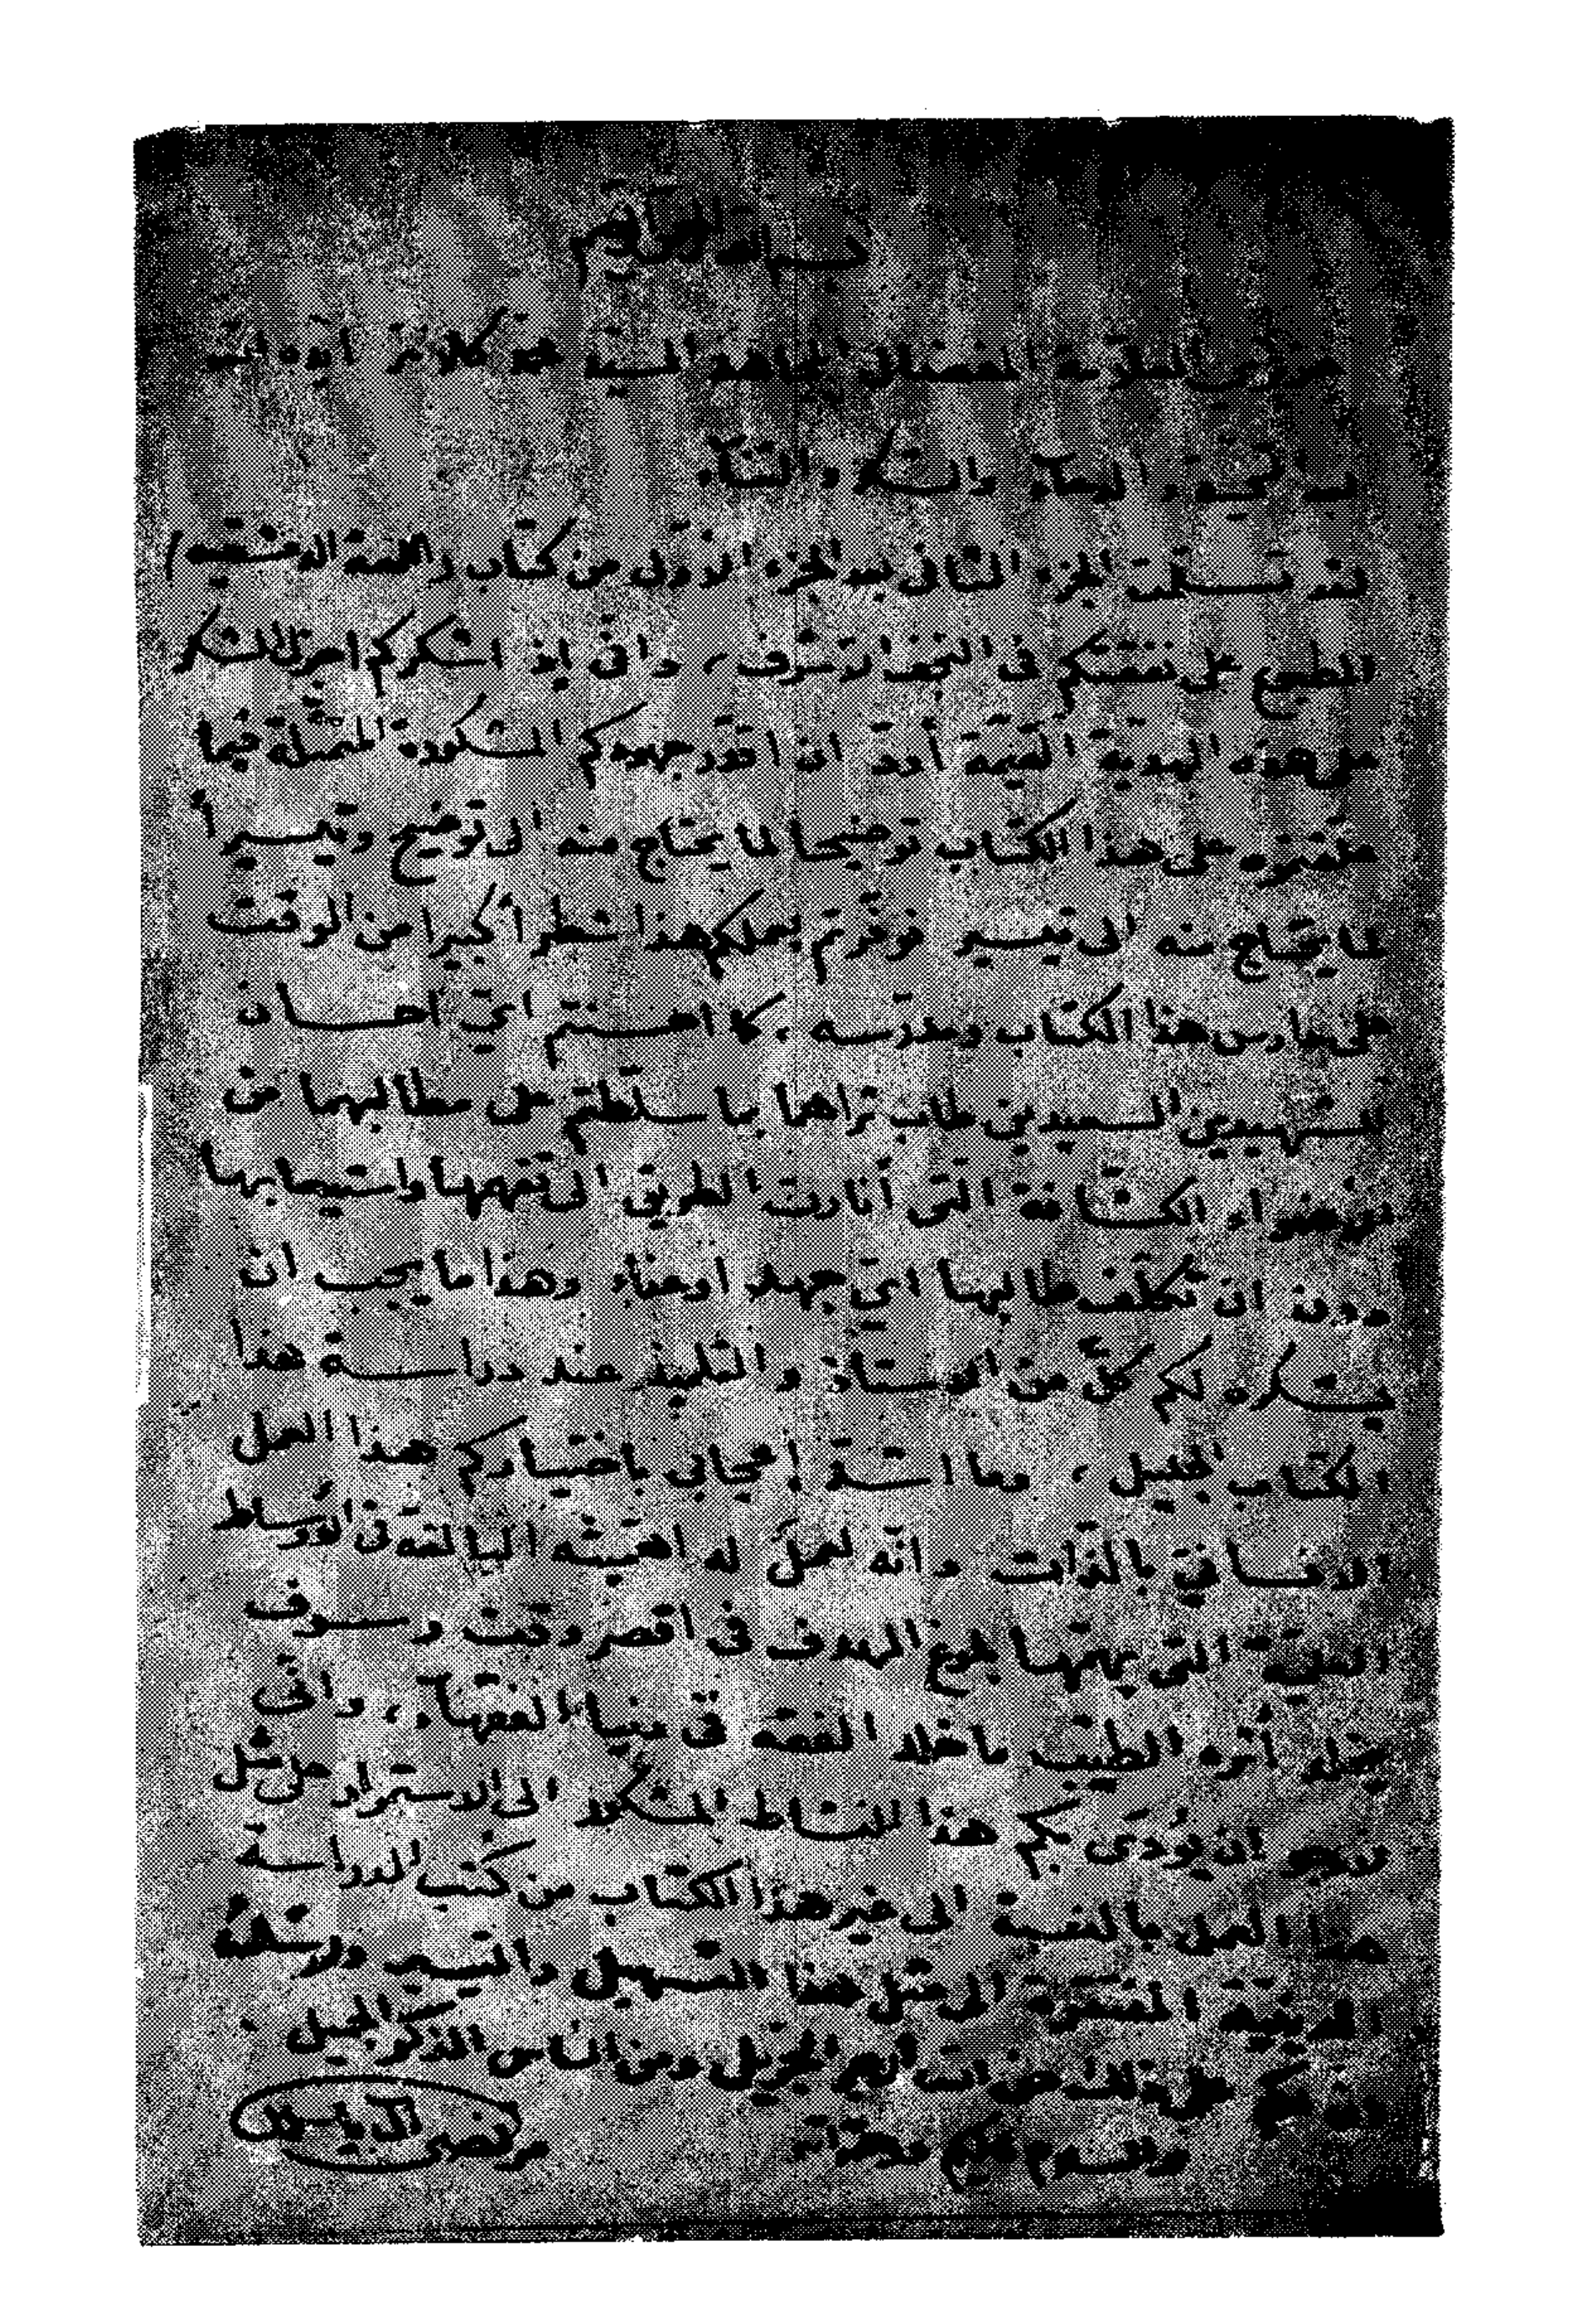 بسم الله الرحمن الرحيم
المفضال المجاهد السيد محمد كلانتر ايده الله
بعد التحية والدعاء والشكر والثناء
لقد تسلمت الجزء الثاني بعد الجزء الاول من كتاب (اللمعة الدمشقية)
المطبوع على نفقتكم في النجف الاشرف، واني إذ اشكركم اجزل الشكر
على هذه الهدية القيمة أود ان اقدر جهودكم المشكورة المتمثلة فيما
علقتم على هذا الكتاب توضيحا لما يحتاج منه الى توضيح وتيسيراً
لما يحتاج منه الى تيسير فوفرتم بعملكم هذا شطراً كبيرا من الوقت
على دارس هذا الكتاب ومدرسه، كما احسنتم اي احسان
للشهيدين السعيدين طاب ثراهما بما سلطتم على مطالبهما من
الأضواء الكشافة التي أنارت الطريق الى تفهمها واستيعابها
بدون ان تكلف طالبها اي جهد أو عناء وهذا ما يجب ان
يشكره لكم كل من الاستاذ والتلميذ عند دراسة هذا
الكتاب الجليل، وما اشد إعجابي باختياركم هذا العمل
الانساني بالذات وانه لعمل له اهميته البالغة في الاوساط
العلمية التي يهمها بلوغ الهدف في اقصر وقت وسوف
يخلد أثره الطيب ما خلد الفقه في دنيا الفقهاء، واني
لارجو ان يؤدي بكم هذا النشاط المشكور الى الاستمرار على مثل
هذا العمل بالنسبة الى غير هذا الكتاب من كتب الدراسة
الدينية المفتقرة الى مثل هذا التسهيل والتيسير ولا شك
على ذلك من الله الاجر الجزيل ومن الناس الذكر الجميل.
والسلام عليكم ورحمة الله مرتضى آل ياسين